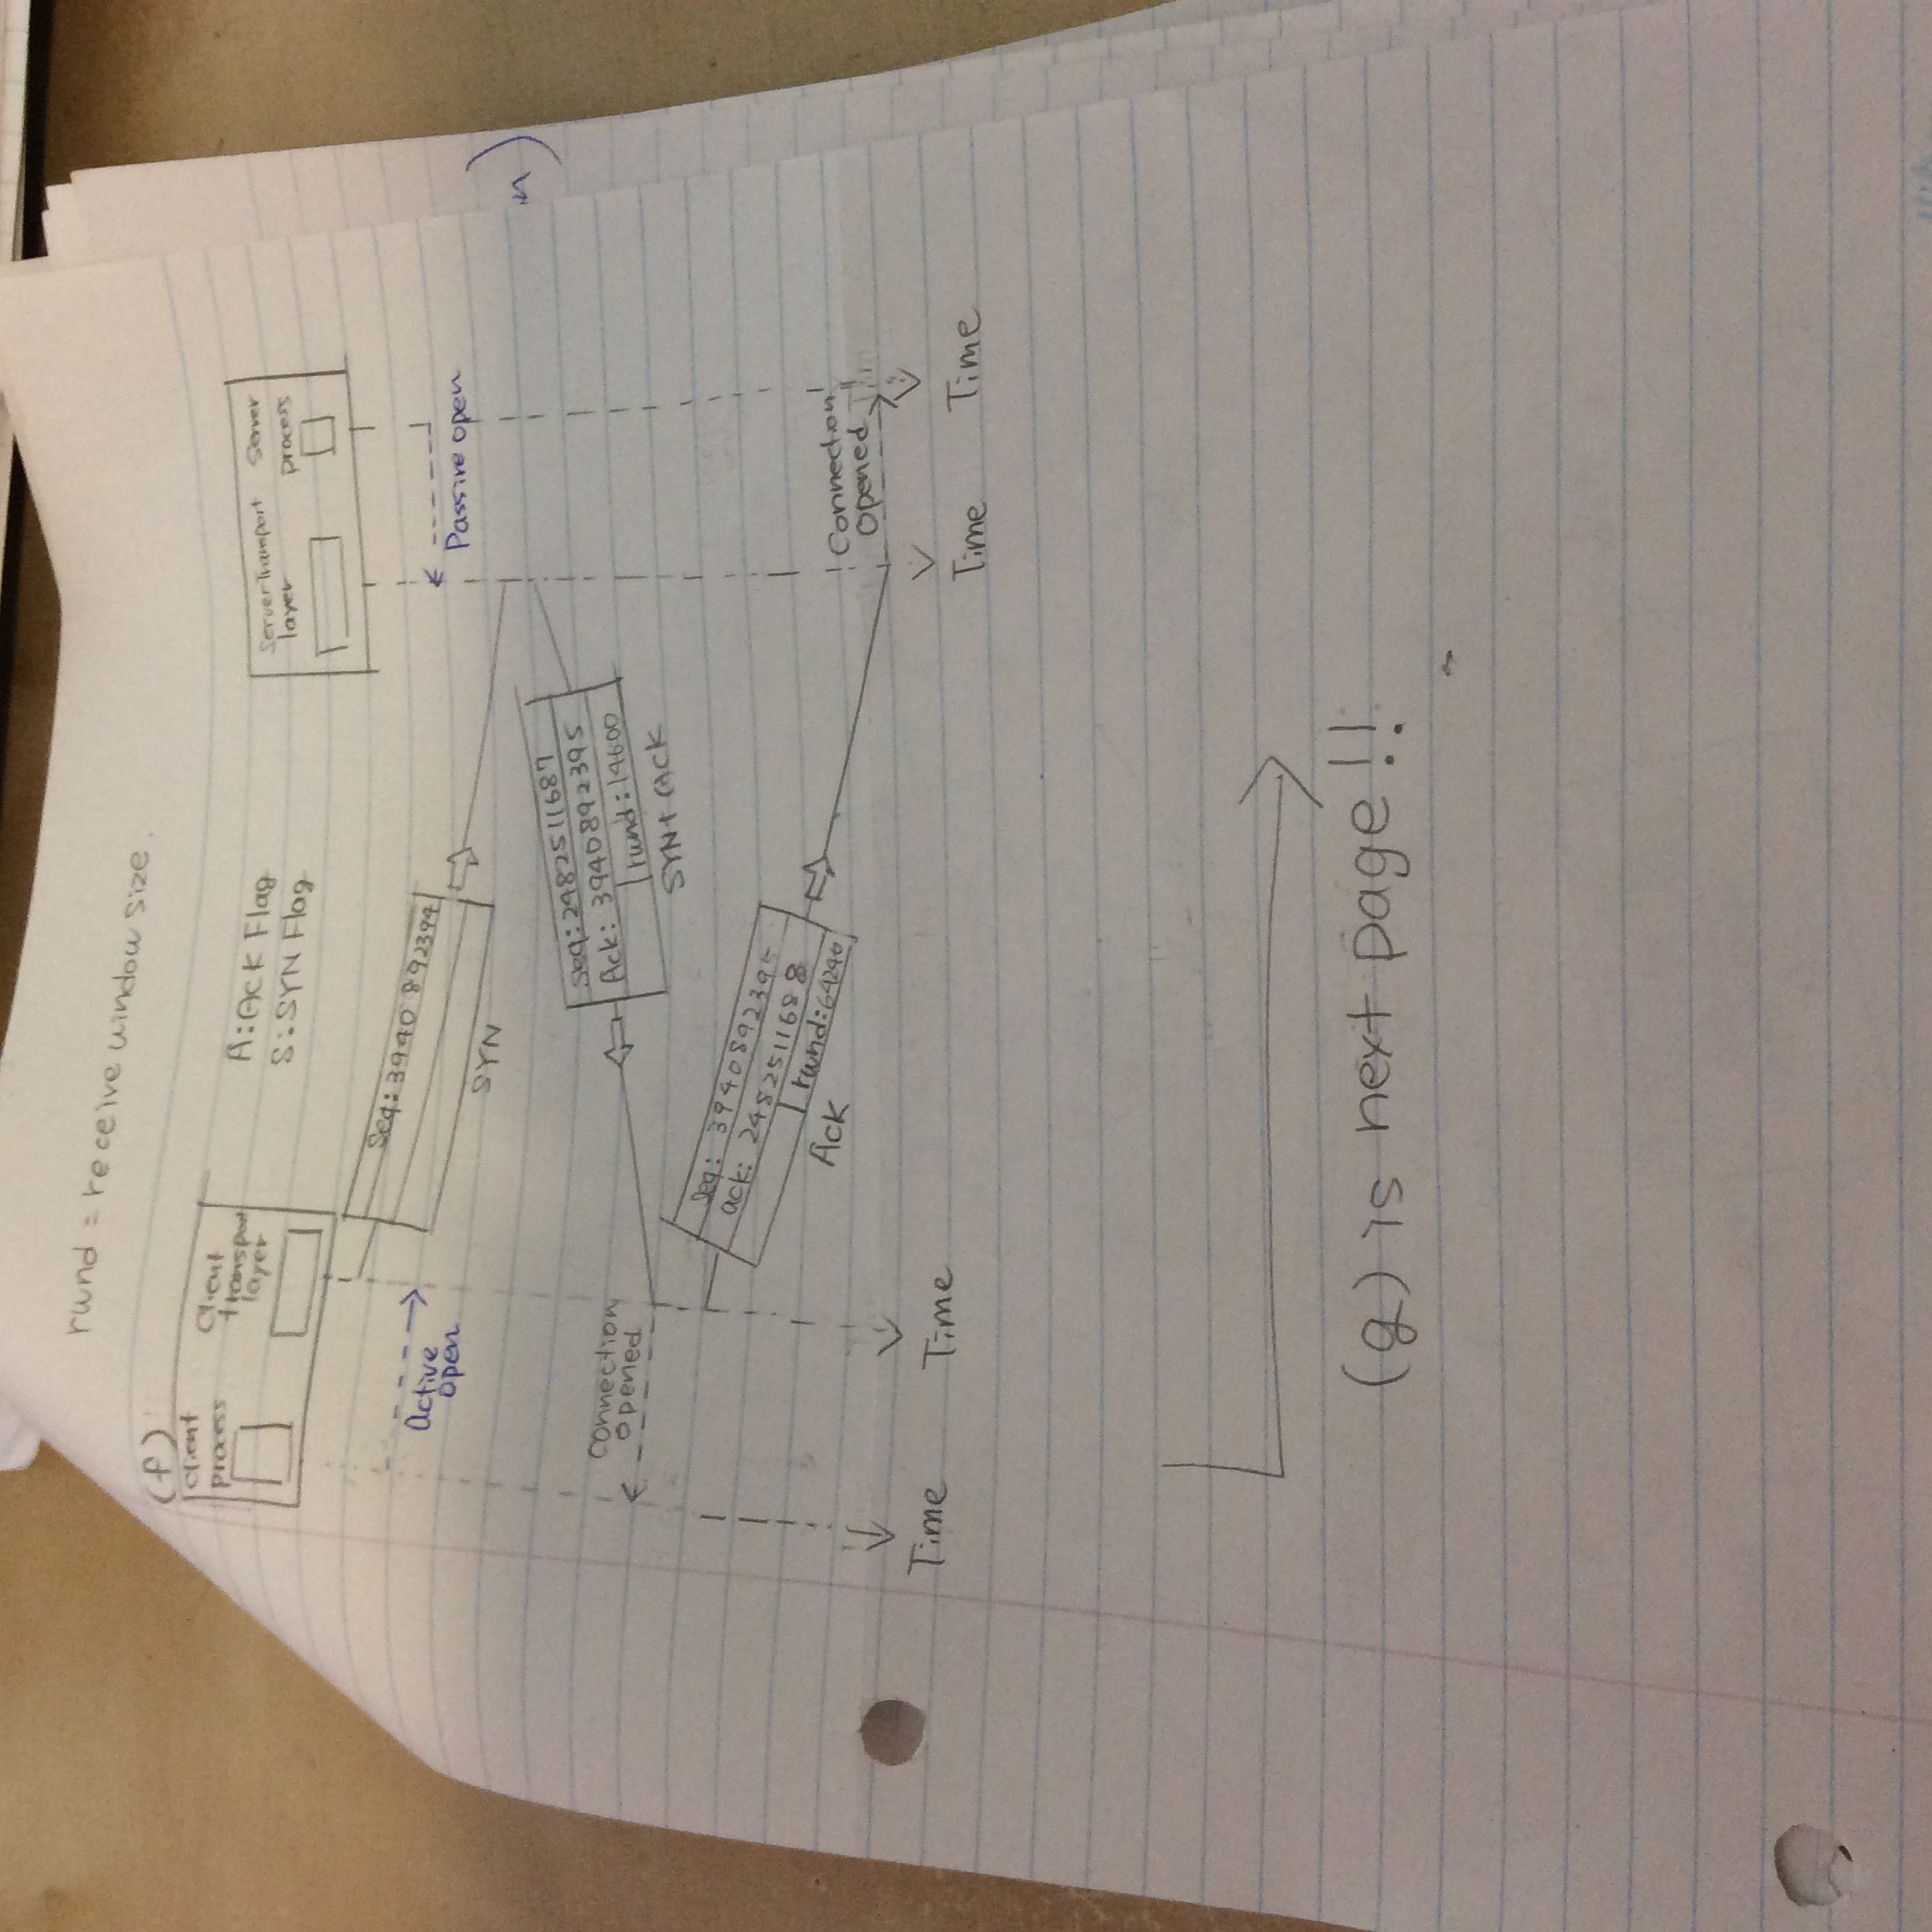 rwnd = receive window size.
(f)
Client
process
Client
transport
layer
A: Ack Flag
S: SYN Flag
Server Transport
layer
Server
process
Seq: 3940 892394
SYN
Active
open
Passive open
Seq: 2482511687
Ack: 3940892395
rwnd: 14600
SYN + Ack
Connection
opened
Seq: 3940892395
ack: 2482511688
rwnd: 64240
Ack
Connection
Opened
Time
Time
Time
Time
(g) is next page!!